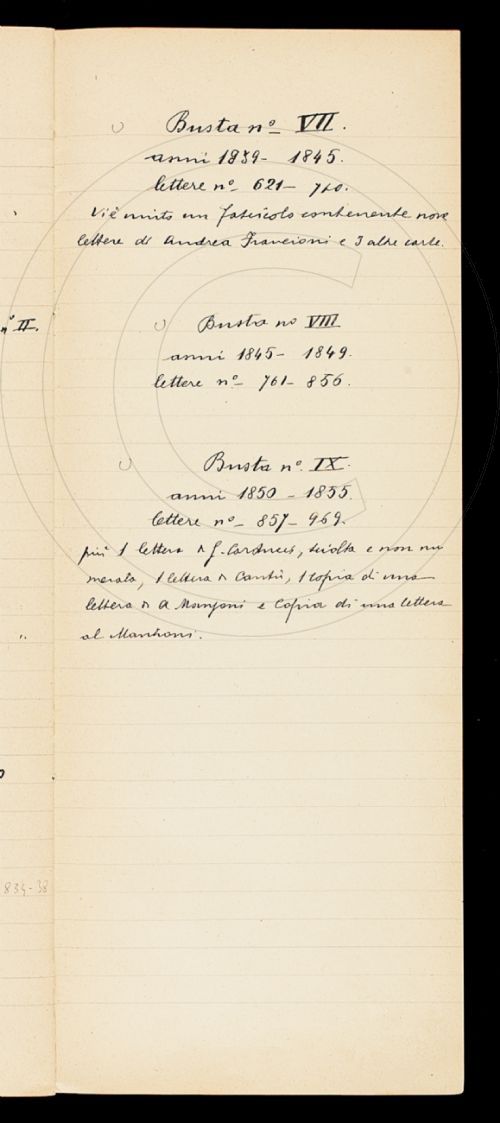 Busta nº VII.
anni 1839 - 1845.
lettere nº 621 - 760.
Vi è unito un fascicolo contenente nove
lettere di Andrea Francioni e 3 altre carte.
nº II.
Busta nº VIII
anni 1845 - 1849.
lettere nº - 761 - 856.
Busta nº. IX.
anni 1850 - 1855.
lettere nº - 857 - 969.
più 1 lettera di G. Carducci, sciolta e non nu
merata, 1 lettera di Cantù, 1 copia di una
lettera di A Manzoni e Copia di una lettera
al Manzoni.
834-38